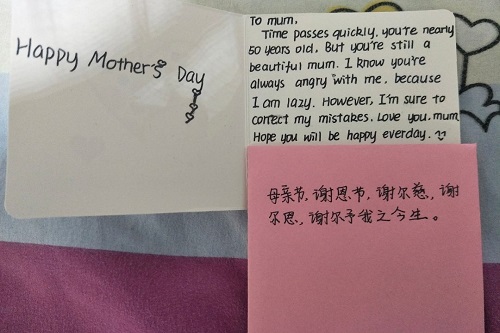 Happy Mother's Day
To mum,
Time passes quickly, you're nearly
50 years old. But you're still a
beautiful mum. I know you're
always angry with me, because
I am lazy. However, I'm sure to
correct my mistakes. Love you.mum
Hope you will be happy everday.
母亲节,谢恩节,谢尔慈,谢
尔恩,谢尔予我之今生。